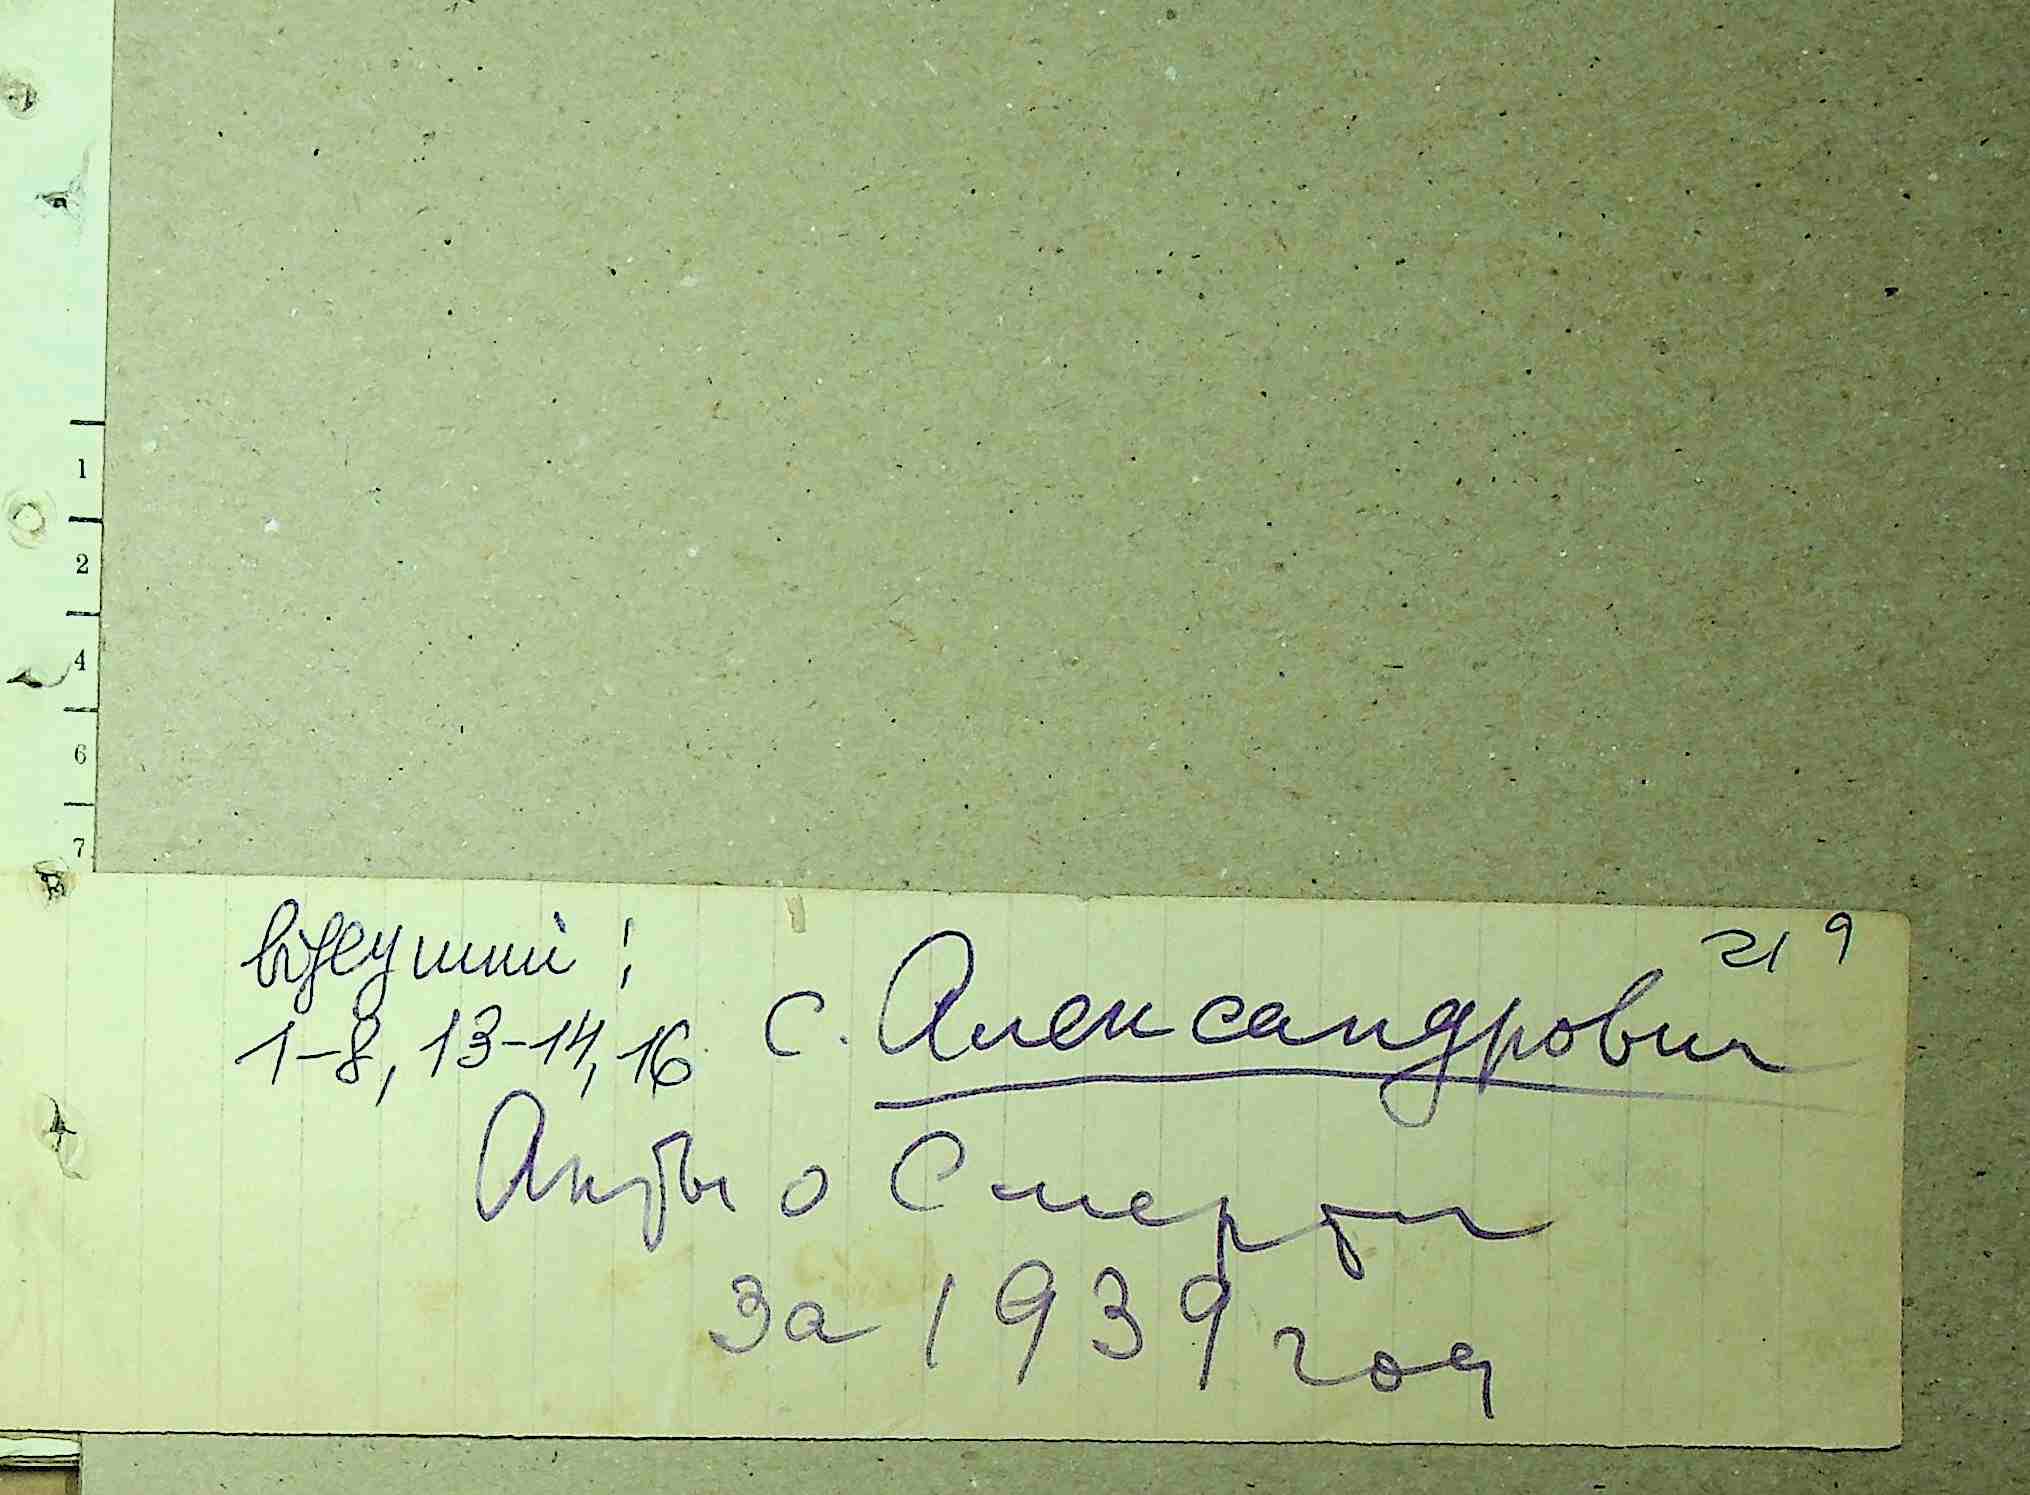 1
2
4
6
7
відсутні:
219
1-8, 13-14, 16
с. Александровка
Акты о Смерти
За 1939 год